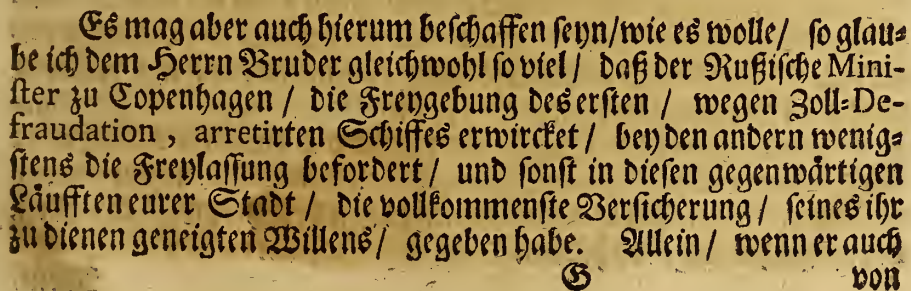 Es mag aber auch hierum beschaffen seyn/wie es wolle/ so glau-
be ich dem Herrn Bruder gleichwohl so viel / daß der Rußische Mini-
ster zu Copenhagen / die Freygebung des ersten / wegen Zoll-De-
fraudation , arretirten Schiffes erwircket / bey den andern wenig-
stens die Freylassung befordert / und sonst in diesen gegenwärtigen
Läufften eurer Stadt / die vollkommenste Versicherung / seines ihr
zu dienen geneigten Willens / gegeben habe. Allein / wenn er auch
G von